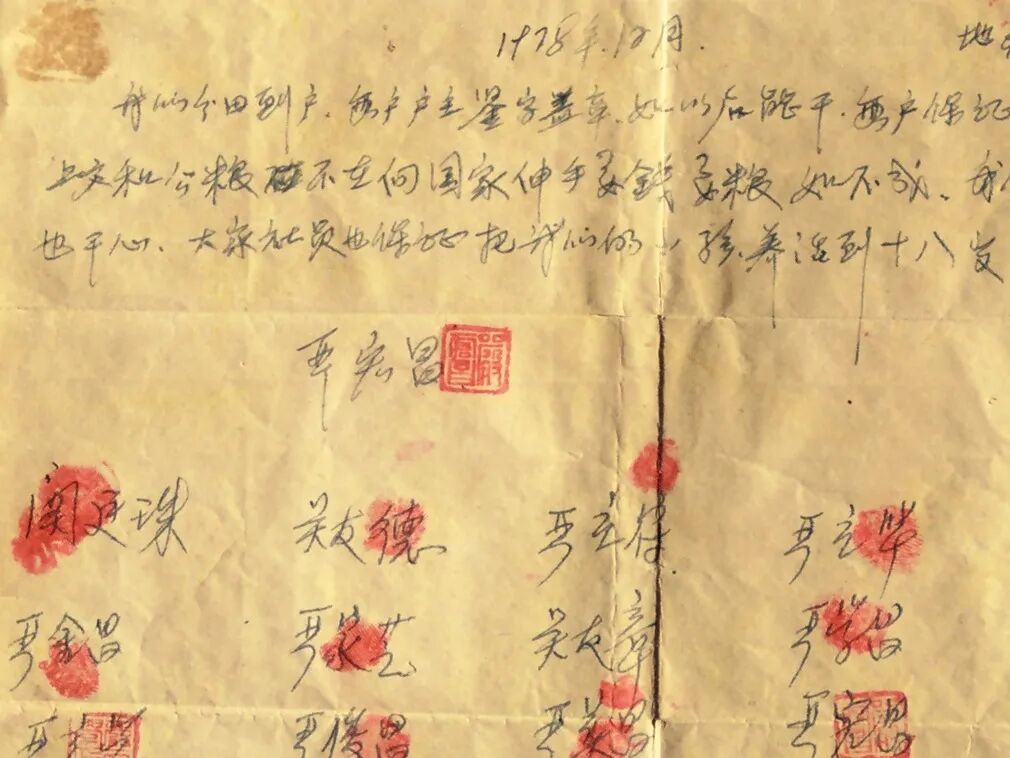 1978年12月. 地
我们分田到户,每户户主签字盖章,如以后能干,每户保证
上交和公粮 不在向国家伸手要钱要粮 如不成,我
也干心,大家社员也保证把我们的小孩养活到十八岁
严宏昌
关廷珠 关友德 严立符 严立华
严金昌 严家芝 关友章 严学昌
严 严俊昌 严美昌 严宏昌